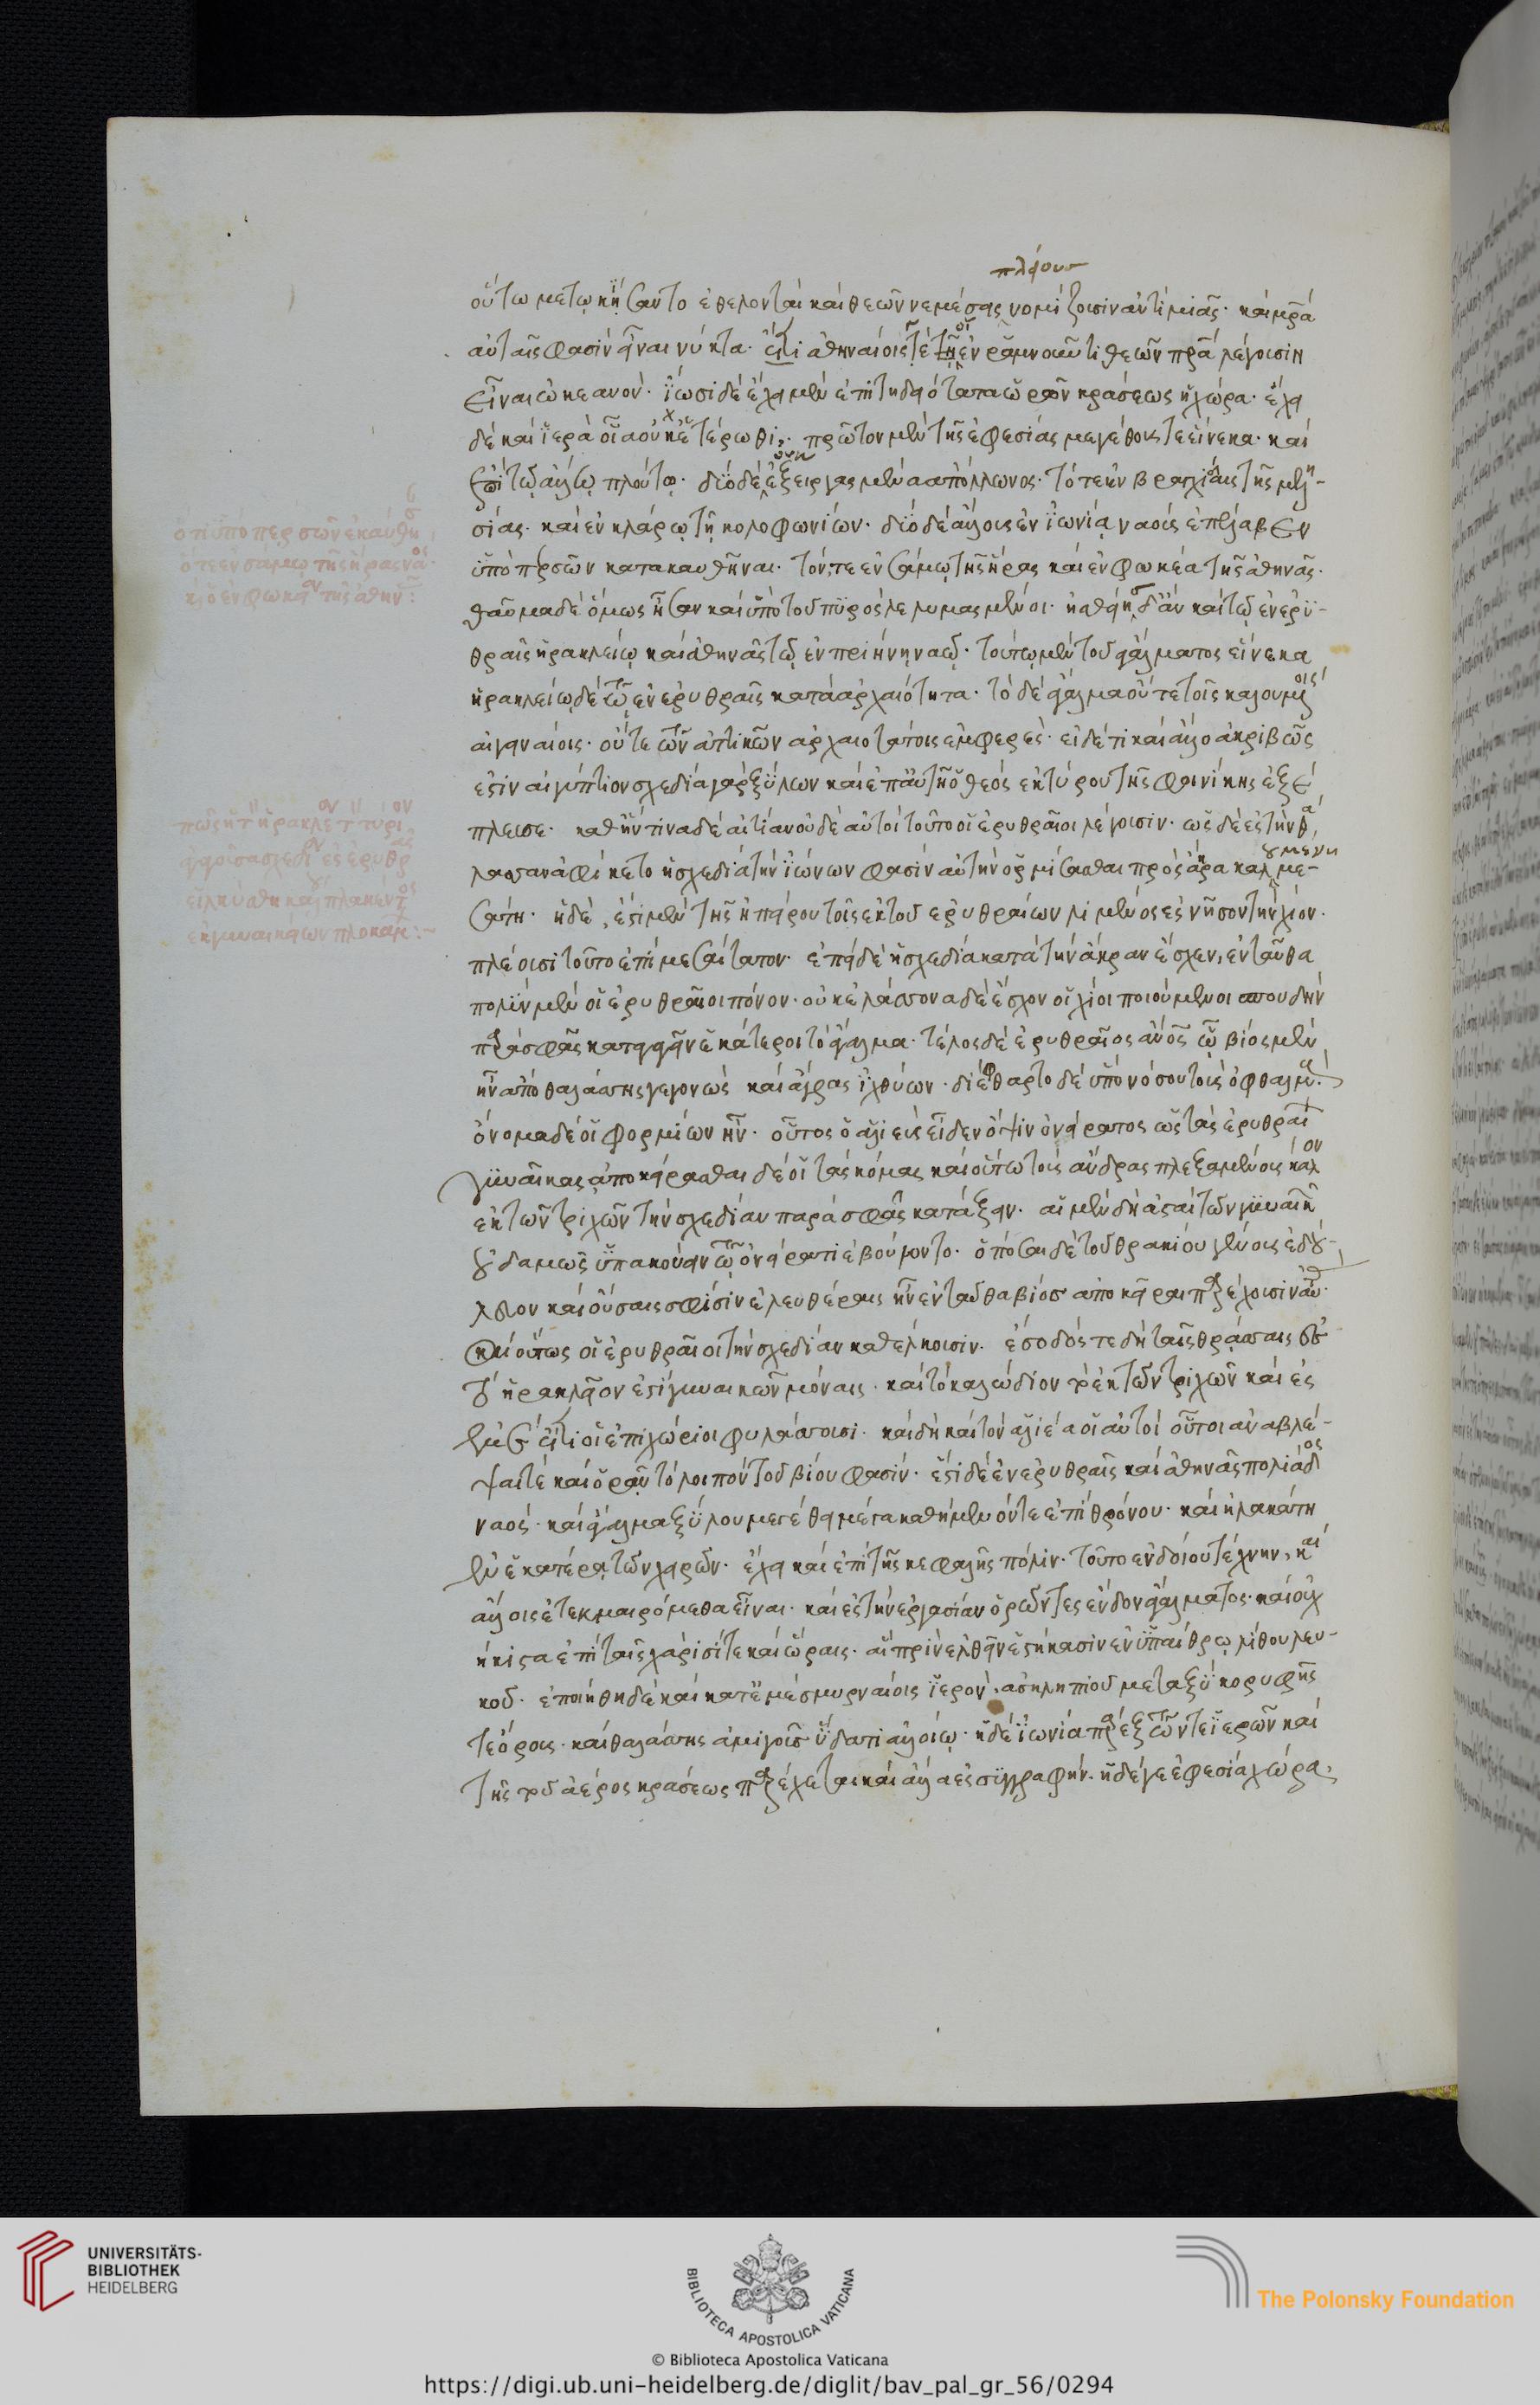 πλείους
οὕτω μετῳκήσαντο ἐθελονταὶ καὶ θεῶν νεμέσεις νομίζουσιν ἀντὶ μιᾶς· καὶ μρ̅α
αὐταῖς φασὶν εἶναι νύκτα· ἐπεὶ ἀθηναῖοί γε τῇ ἐν ῥαμνοῦντι θεῶν πρ̅α λέγουσιν
εἶναι ὠκεανόν· ἴωσι δὲ ἔχει μὲν ἐπιτηδειότατα ὡρῶν κράσεως ἡ χώρα· ἔχει
δὲ καὶ ἱερὰ οἷα οὐχ ἑτέρωθι· πρῶτον μὲν τῆς ἐφεσίας μεγέθους τε εἵνεκα· καὶ
ἐπὶ τῷ ἄλλῳ πλούτῳ· δύο δὲ οὐκ ἐξειργασμένα ἀπόλλωνος· τό τε ἐν βραγχίδαις τῆς μιλη-
σίας· καὶ ἐν κλάρῳ τῇ κολοφωνίων· δύο δὲ ἄλλους ἐν ἰωνίᾳ ναοὺς ἐπέλαβεν
ὑπὸ περσῶν κατακαυθῆναι· τόν, τε ἐν σάμῳ τῆς ἥρας καὶ ἐν φωκέα τῆς ἀθηνᾶς·
θαῦμα δὲ ὅμως ἦσαν καὶ ὑπὸ τοῦ πυρὸς λελυμασμένοι· ἡσθείης δ' ἂν καὶ τῷ ἐν ἐρυ-
θραῖς ἡρακλείῳ καὶ ἀθηνᾶς τῷ ἐν πριήνῃ ναῷ· τούτῳ μὲν τοῦ ἀγάλματος εἵνεκα
ἡρακλείῳ δὲ τῷ ἐν ἐρυθραῖς κατὰ ἀρχαιότητα· τὸ δὲ ἄγαλμα οὔτε τοῖς καλουμένοις
αἰγιναίοις· οὔτε τῶν ἀττικῶν ἀρχαιοτάτοις ἐμφερές· εἰ δέ τι καὶ ἄλλο ἀκριβῶς
ἐστὶν αἰγύπτιον σχεδία γὰρ ξύλων καὶ ἐπ' αὐτῇ ὁ θεὸς ἐκ τύρου τῆς φοινίκης ἐξέ
πλευσε· καθ' ἥντινα δὲ αἰτίαν οὐδὲ αὐτοὶ τοῦτο οἱ ἐρυθραῖοι λέγουσιν· ὡς δὲ ἐς τὴν θά
λασσαν ἀφίκετο ἡ σχεδία τὴν ἰώνων φασὶν αὐτὴν ὁρμίσασθαι πρὸς ἄκρᾳ καλουμένη με-
σάτη· ἡ δὲ, ἐστὶ μὲν τῆς ἠπείρου τοῖς ἐκ τοῦ ἐρυθραίων λιμένος ἐς νῆσον τὴν χίον·
πλέουσι τοῦτο ἐπὶ μεσαίτατον· ἐπεὶ δὲ ἡ σχεδία κατὰ τὴν ἄκραν ἔσχεν, ἐνταῦθα
πολὺν μὲν οἱ ἐρυθραῖοι πόνον· οὐκ ἐλάσσονα δὲ ἔσχον οἱ χῖοι ποιούμενοι σπουδὴν
παρὰ σφᾶς καταγαγεῖν ἑκάτεροι τὸ ἄγαλμα· τέλος δὲ ἐρυθραῖος ἀνὸς ᾧ βίος μὲν
ἦν ἀπὸ θαλάσσης γεγονὼς καὶ ἄγρας ἰχθύων· διέφθαρτο δὲ ὑπὸ νόσου τοὺς ὀφθαλμού·
ὄνομα δέ οἱ φορμίων ἦν· οὗτος ὁ ἁλιεὺς εἶδεν ὄψιν ὀνείρατος ὡς τὰς ἐρυθραί
γυναῖκας ἀποκείρασθαι δέοι τὰς κόμας καὶ οὕτω τοὺς ἄνδρας πλεξαμένους κάλον
ἐκ τῶν τριχῶν τὴν σχεδίαν παρὰ σφᾶς κατάξειν· αἱ μὲν δὴ ἀσταὶ τῶν γυναικ
οὐδαμῶς ὑπακούειν τῷ ὀνείρατι ἐβούλοντο· ὁπόσαι δὲ τοῦ θρακίου γένους ἐδού-
λευον καὶ οὔσαις σφίσιν ἐλευθέραις ἦν ἐνταῦθα βίος ἀποκεῖραι παρέχουσιν αὑ·
καὶ οὕτως οἱ ἐρυθραῖοι τὴν σχεδίαν καθέλκουσιν· ἔσοδός τε δὴ ταῖς θρᾴσσαις ἐς
τὸ ἡρακλεῖον ἐστὶ γυναικῶν μόναις· καὶ τὸ καλώδιον τὸ ἐκ τῶν τριχῶν καὶ ἐς
ἐμὲ ἔτι οἱ ἐπιχώριοι φυλάσσουσι· καὶ δὴ καὶ τὸν ἁλιέα οἱ αὐτοὶ οὗτοι ἀναβλέ-
ψαι τὲ καὶ ὁρᾶν τὸ λοιπὸν τοῦ βίου φασίν· ἔστι δὲ ἐν ἐρυθραῖς καὶ ἀθηνᾶς πολιάδος
ναός· καὶ ἄγαλμα ξύλου μεγέθει μέγα καθήμενον τε ἐπὶ θρόνου· καὶ ἠλακάτην
ἐν ἑκατέρᾳ τῶν χειρῶν· ἔχει καὶ ἐπὶ τῆς κεφαλῆς πόλιν· τοῦτο ἐνδοίου τέχνην, καὶ
ἄλλοις ἐτεκμαιρόμεθα εἶναι· καὶ ἐς τὴν ἐργασίαν ὁρῶντες ἔνδον ἀγάλματος· καὶ οὐχ
ἥκιστα ἐπὶ ταῖς χάρισί τε καὶ ὥραις· αἳ πρὶν ἐλθεῖν ἑστήκασιν ἐν ὑπαίθρῳ λίθου λευ-
κοῦ· ἐποιήθη δὲ καὶ κατ' ἐμὲ σμυρναίοις ἱερόν, ἀσκληπιοῦ μεταξὺ κορυφῆς
τε ὄρους· καὶ θαλάσσης ἀμιγοῦς ὕδατι ἀλλοίῳ· ἡ δὲ ἰωνία πάρεξ τῶν τε ἱερῶν καὶ
τῆς τοῦ ἀέρος κράσεως παρέχεται καὶ ἄλλα ἐς συγγραφήν· ἡ δέ γε ἐφεσία χώρα,
ὅτι ὑπὸ περσῶν ἐκαύθη
ὅ τε ἐν σάμῳ τῆς ἥρας ναὸς
καὶ ὁ ἐν φωκ τῆς ἀθην:
UNIVERSITÄTS-
BIBLIOTHEK
HEIDELBERG
BIBLIOTECA APOSTOLICA VATICANA
The Polonsky Foundation
© Biblioteca Apostolica Vaticana
https://digi.ub.uni-heidelberg.de/diglit/bav_pal_gr_56/0294